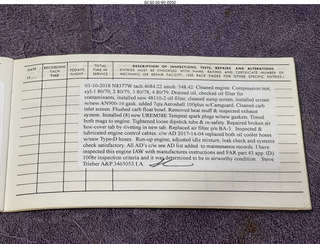 DATE
RECORDING TACH TIME
TODAY'S FLIGHT
TOTAL TIME IN SERVICE
DESCRIPTION OF INSPECTIONS, TESTS, REPAIRS AND ALTERATIONS
ENTRIES MUST BE ENDORSED WITH NAME, RATING AND CERTIFICATE NUMBER OF
MECHANIC OR REPAIR FACILITY. (SEE BACK PAGES FOR OTHER SPECIFIC ENTRIES.)
03-10-2018 N8377W tach 4684.22 smoh: 548.42 Cleaned engine. Compression test,
cyl-1 80/79, 2 80/79, 3 80/78, 4 80/79. Drained oil, checked oil filter for
contaminates, installed new 48110-2 oil filter, cleaned sump screen, installed screen
w/new AN900-16 gask. added 7qts Aeroshell 100plus w/Camguard. Cleaned carb
inlet screen. Flushed carb float bowl. Removed heat muff & inspected exhaust
system. Installed (8) new UREM38E Tempest spark plugs w/new gaskets. Timed
both mags to engine. Tightened loose dipstick tube & re-safety. Repaired broken air
box-cover tab by riveting in new tab. Replaced air filter p/n BA-3. Inspected &
lubricated engine control cables. c/w AD 2017-14-04 replaced both oil cooler hoses
w/new Type-D hoses. Run-up engine, adjusted idle mixture, leak check and systems
check satisfactory. All AD's c/w see AD list added to maintenance records. I have
inspected this engine IAW with manufactures instructions and FAR part 43 app. (D)
100hr inspection criteria and it was determined to be in airworthy condition. Steve
A&P 3465053 I.A.